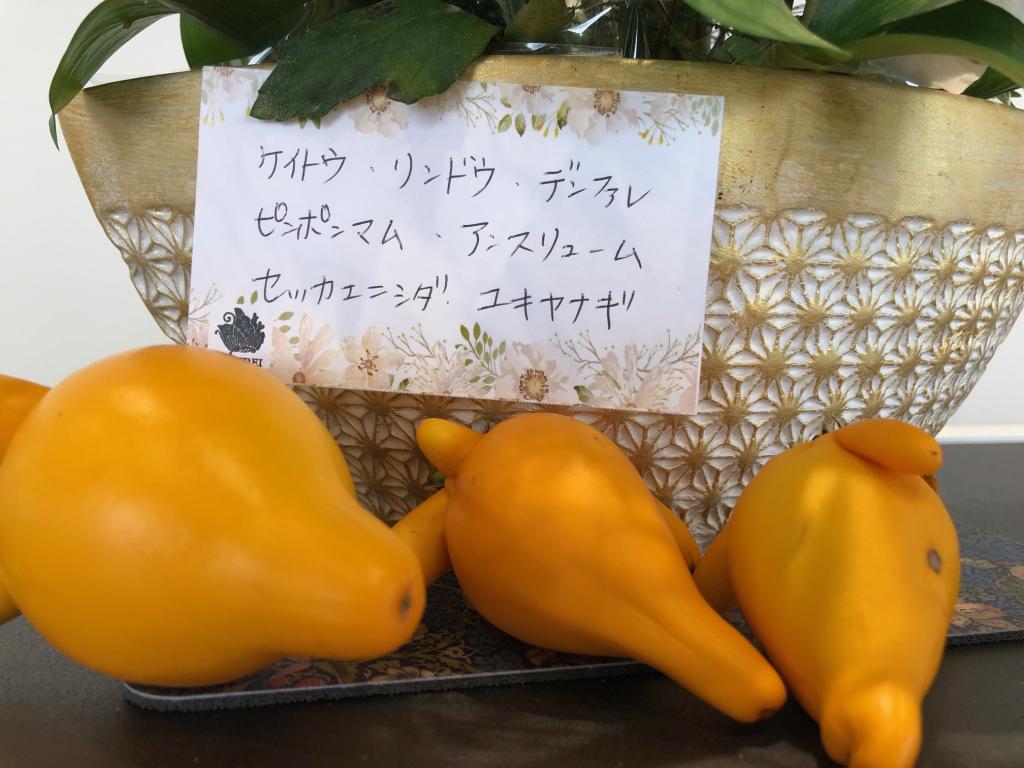 ケイトウ・リンドウ・デンファレ
ピンポンマム・アンスリューム
セッカエニシダ！ユキヤナギ